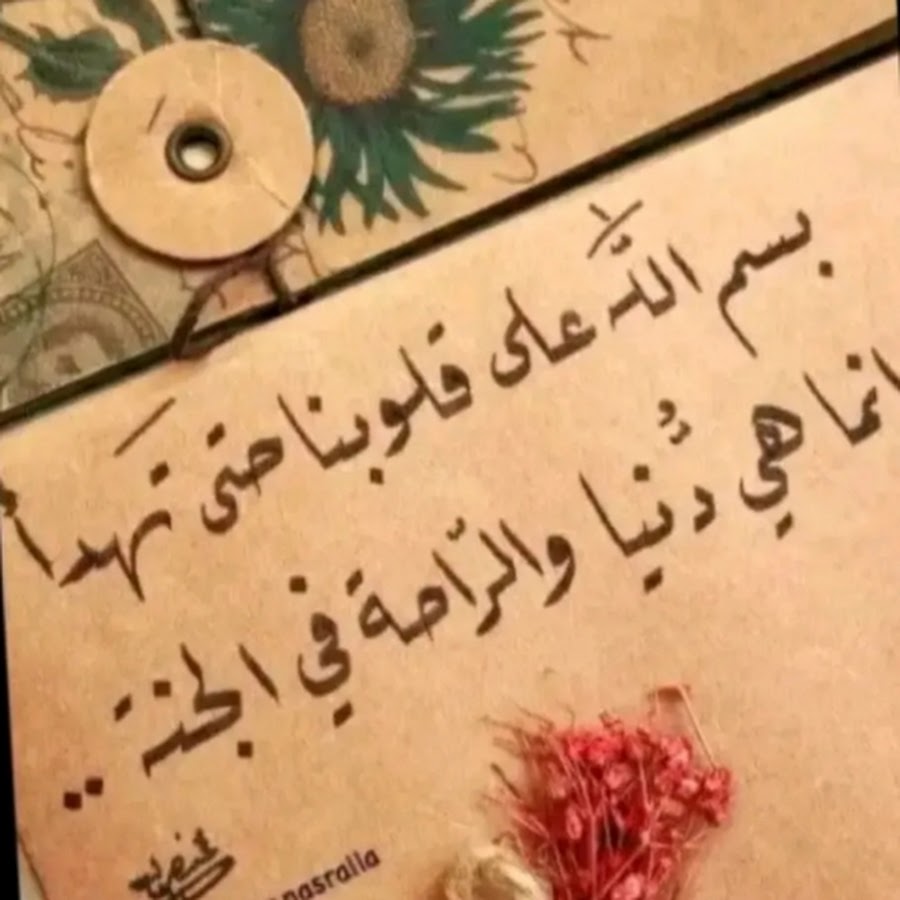 بسم اللَّه على قلوبنا حتى تَهدأ
انما هي دُنيا والرّاحة في الجنة ..
nasralla